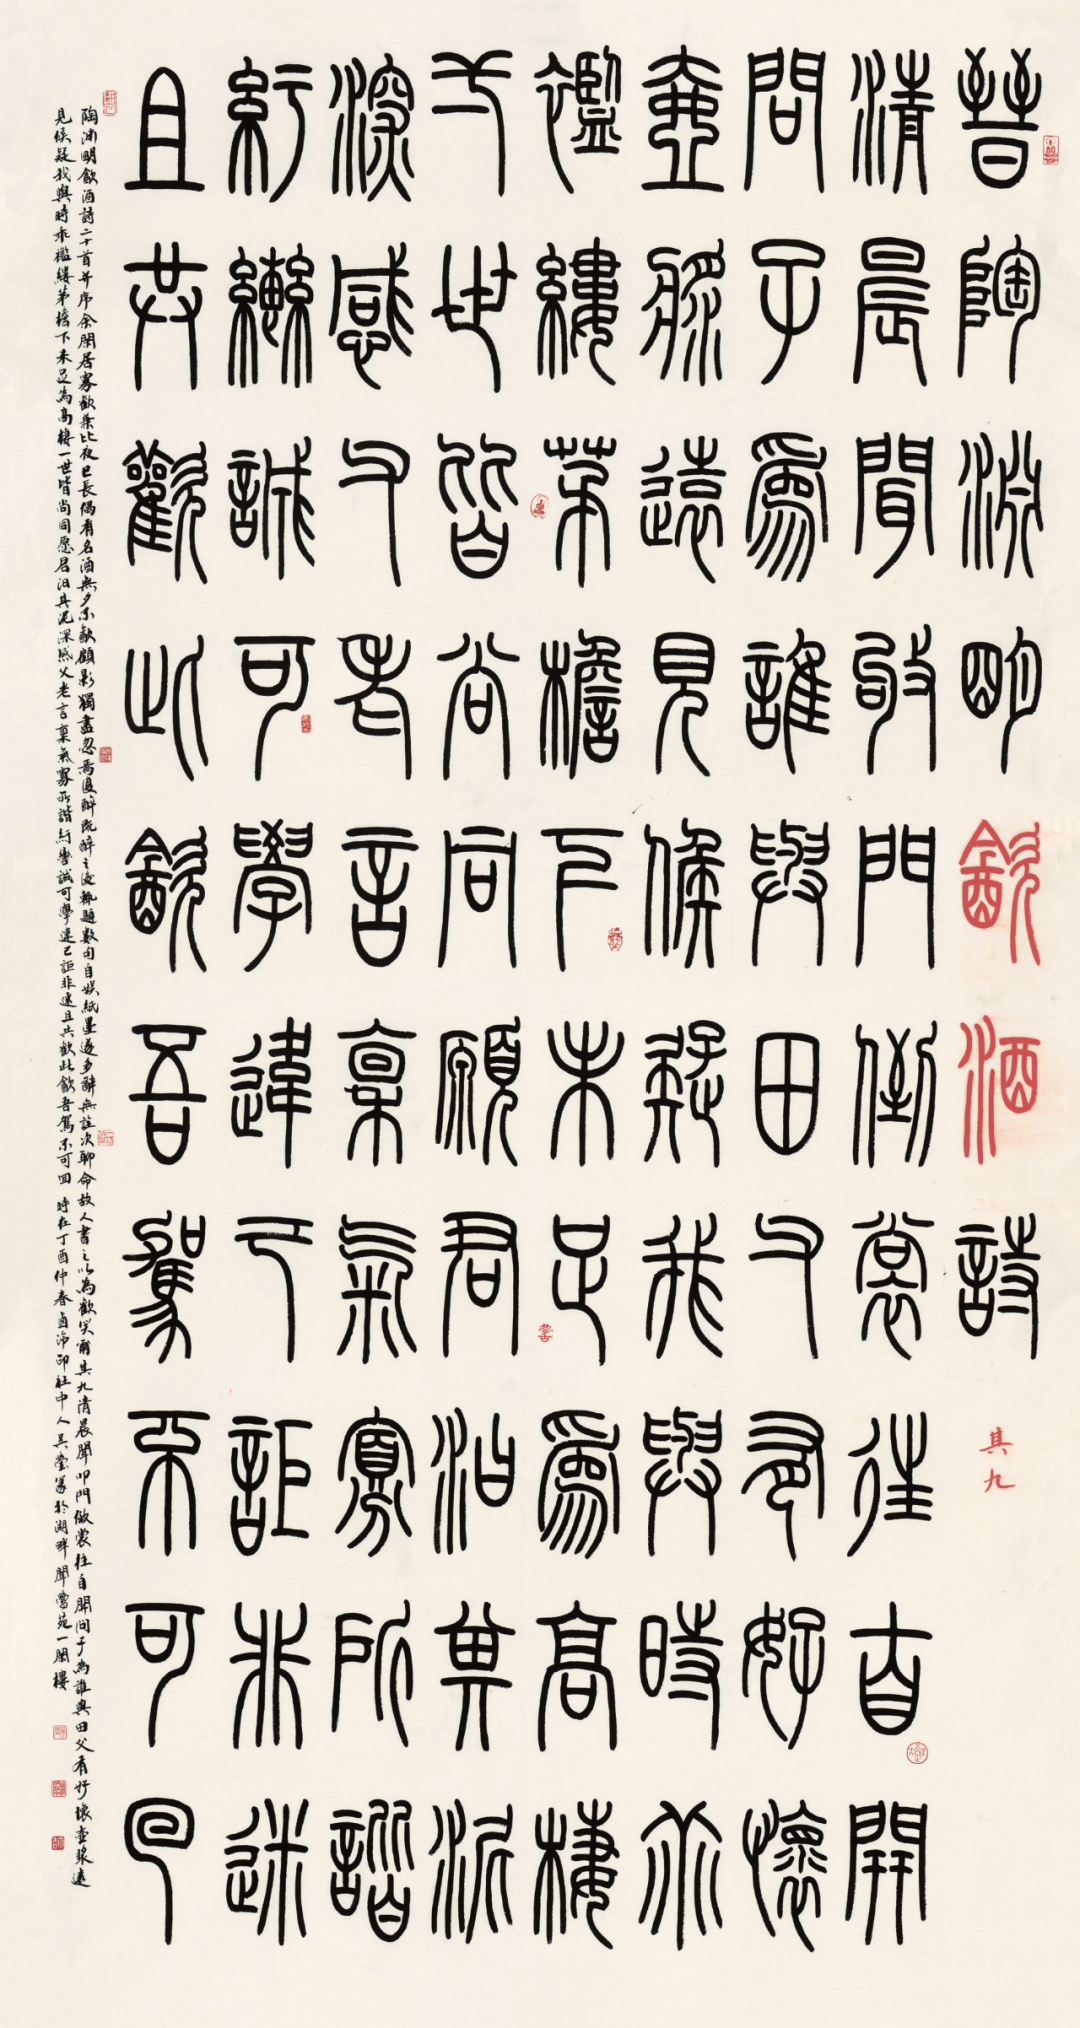 晉陶淵明飲酒詩
其九
清晨聞敂門倒裳往自開
問子為誰與田父有好懷
壺漿遠見候疑我與時乖
襤縷茅檐下未足為高棲
一世皆尚同願君汩其泥
深感父老言稟氣寡所諧
紆轡誠可學違己詎非迷
且共歡此飲吾駕不可回
陶淵明飲酒詩二十首并序余閑居寡歡兼比夜已長偶有名酒無夕不飲顧影獨盡忽焉復醉既醉之後輒題數句自娛紙墨遂多辭無詮次聊命故人書之以為歡笑爾其九清晨聞叩門倒裳往自開問子為誰與田父有好懷壺漿遠
見候疑我與時乖襤縷茅檐下未足為高棲一世皆尚同愿君汩其泥深感父老言稟氣寡所諧紆轡誠可學違己詎非迷且共歡此飲吾駕不可回 時在丁酉仲春西泠印社中人吳瑩篆於湖畔聞鶯苑一閑樓